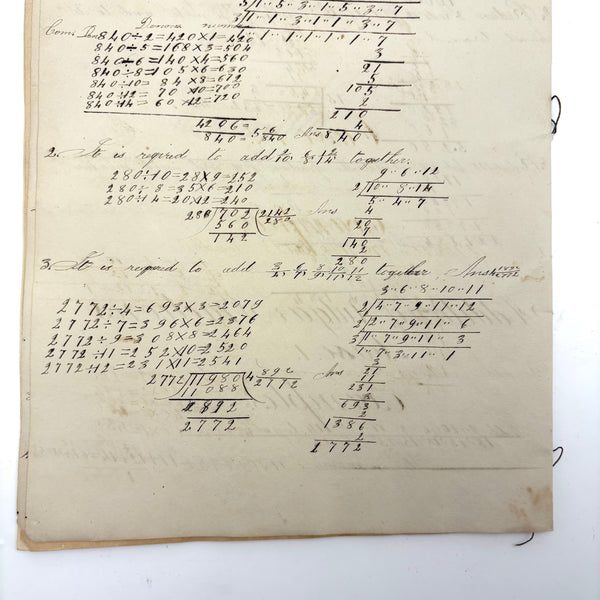 5 ·· 3 ·· 1 ·· 5 ·· 3 ·· 7
3 1 ·· 1 ·· 3 ·· 1 ·· 1 ·· 3 ·· 7
1 ·· 1 ·· 1 ·· 1 ·· 1 ·· 1 ·· 7
Com. Denom
840÷2=420×1=420
840÷5=168×3=504
840÷6=140×4=560
840÷8=105×6=630
840÷10=84×8=672
840÷12=70×10=700
840÷14=60×12=720
4206=
840= 5 6/840 Ans
3
21
5
105
2
210
4
840
2. It is required to add 9/10 6/8 12/14 together.
280÷10=28×9=252
280÷8=35×6=210
280÷14=20×12=240
280)702(2 142/280 Ans
560
142
9 ·· 6 ·· 12
2 10 ·· 8 ·· 14
5 ·· 4 ·· 7
4
20
7
140
2
280
3. It is required to add 3/4 6/7 8/9 10/11 11/12 together. Ans
2772÷4=693×3=2079
2772÷7=396×6=2376
2772÷9=308×8=2464
2772÷11=252×10=2520
2772÷12=231×11=2541
2772)11980(4 892/2772 Ans
11088
892
2772
3 ·· 6 ·· 8 ·· 10 ·· 11
2 4 ·· 7 ·· 9 ·· 11 ·· 12
2 2 ·· 7 ·· 9 ·· 11 ·· 6
3 1 ·· 7 ·· 9 ·· 11 ·· 3
1 ·· 7 ·· 3 ·· 11 ·· 1
3
21
11
231
3
693
2
1386
2
2772